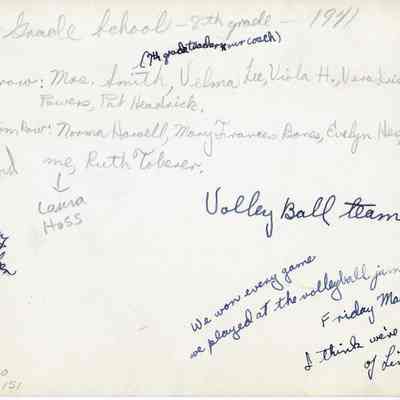 Grade School - 8th grade - 1941
(7th grade teacher & our coach)
row: Mrs. Smith, Velma Lee, Viola H., Vera Lee
Powers, Pat Headrick.
Row: Norma Harvell, Mary Frances Bones, Evelyn
me, Ruth Toberer.
Laura
Hoss
Volley Ball team
We won every game
we played at the volleyball
Friday Ma
I think we're
of Li
151